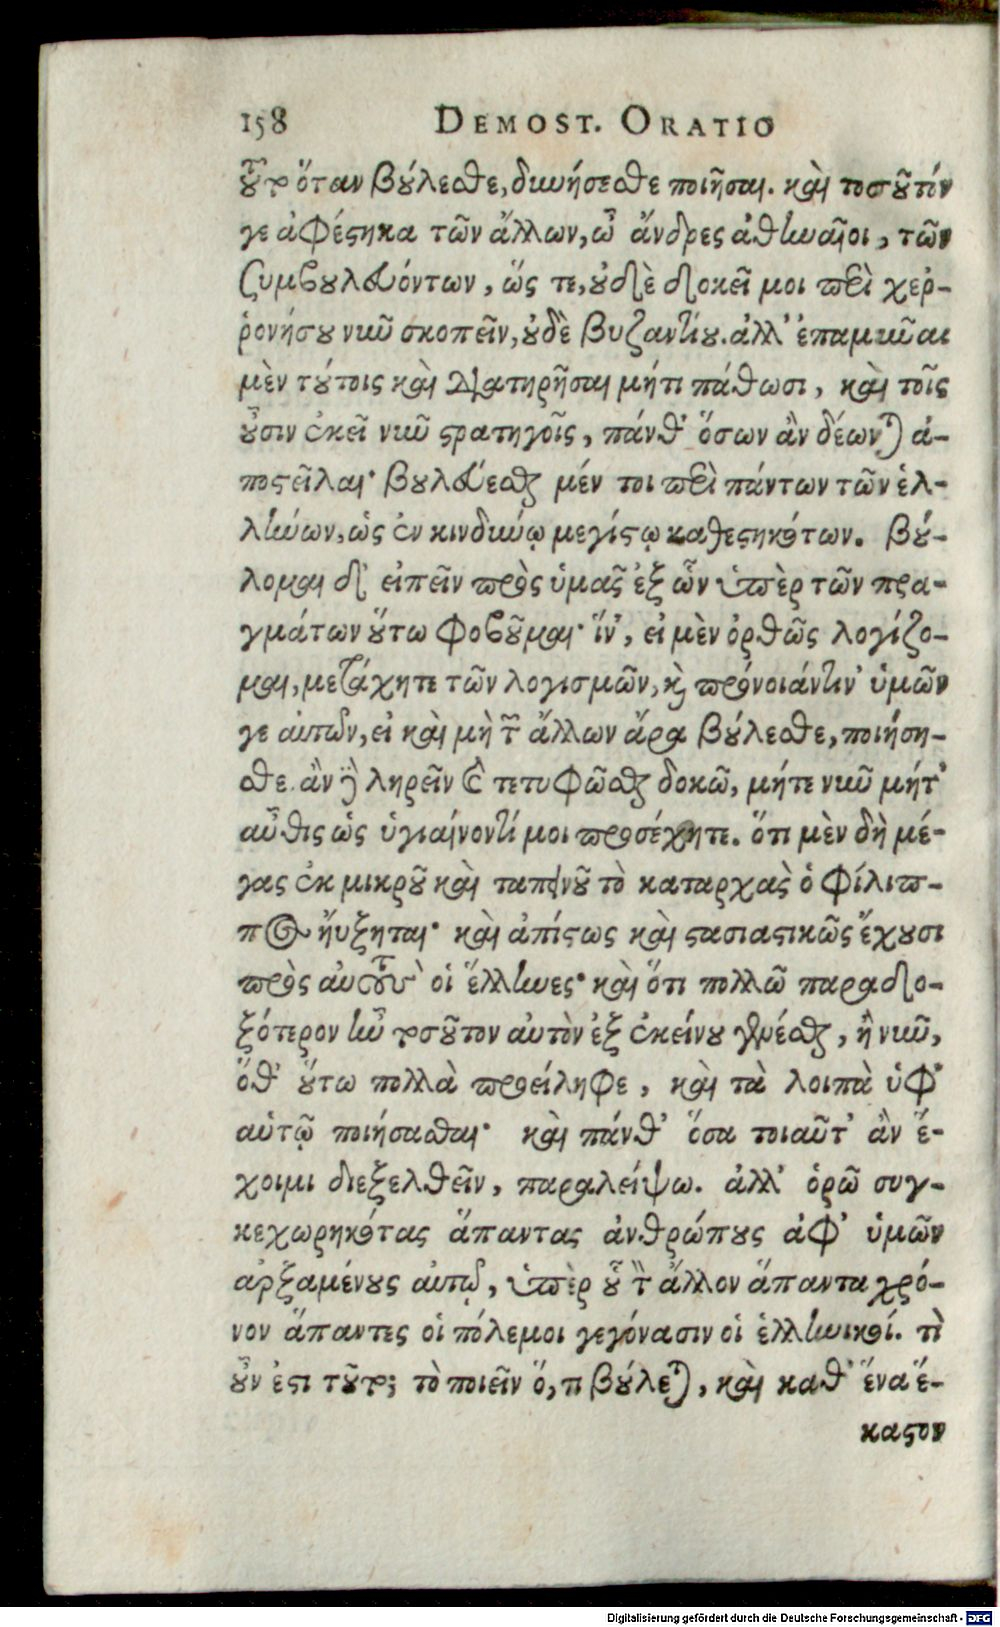 158 DEMOST. ORATIO
τοῦτο ὅταν βούλεσθε, δυνήσεσθε ποιῆσαι. καὶ τοσοῦτόν
γε ἀφέστηκα τῶν ἄλλων, ὦ ἄνδρες ἀθηναῖοι, τῶν
συμβουλευόντων, ὥς τε, οὐδὲ δοκεῖ μοι περὶ χερ-
ρονήσου νῦν σκοπεῖν, οὐδὲ βυζαντίου. ἀλλ' ἐπαμῦναι
μὲν τούτοις καὶ διατηρῆσαι μήτι πάθωσι, καὶ τοῖς
οὖσιν ἐκεῖ νῦν στρατηγοῖς, πάνθ' ὅσων ἂν δέωνται ἀ-
ποστεῖλαι· βουλεύεσθαι μέν τοι περὶ πάντων τῶν ἑλ-
λήνων, ὡς ἐν κινδύνῳ μεγίστῳ καθεστηκότων. βού-
λομαι δ' εἰπεῖν πρὸς ὑμᾶς ἐξ ὧν ὑπὲρ τῶν πρα-
γμάτων οὕτω φοβοῦμαι· ἵν', εἰ μὲν ὀρθῶς λογίζο-
μαι, μετάσχητε τῶν λογισμῶν, καὶ πρόνοιάν τιν' ὑμῶν
γε αὐτῶν, εἰ καὶ μὴ τῶν ἄλλων ἄρα βούλεσθε, ποιήση-
σθε. ἂν δὲ ληρεῖν καὶ τετυφῶσθαι δοκῶ, μήτε νῦν μήτ'
αὖθις ὡς ὑγιαίνοντί μοι προσέχητε. ὅτι μὲν δὴ μέ-
γας ἐκ μικροῦ καὶ ταπεινοῦ τὸ καταρχὰς ὁ φίλιπ-
πος ηὔξηται· καὶ ἀπίστως καὶ στασιαστικῶς ἔχουσι
πρὸς αὑτοὺς οἱ ἕλληνες· καὶ ὅτι πολλῷ παραδο-
ξότερον ἦν τοσοῦτον αὐτὸν ἐξ ἐκείνου γενέσθαι, ἢ νῦν,
ὅθ' οὕτω πολλὰ προείληφε, καὶ τὰ λοιπὰ ὑφ'
αὑτῷ ποιήσασθαι· καὶ πάνθ' ὅσα τοιαῦτ' ἂν ἔ-
χοιμι διεξελθεῖν, παραλείψω. ἀλλ' ὁρῶ συγ-
κεχωρηκότας ἅπαντας ἀνθρώπους ἀφ' ὑμῶν
ἀρξαμένους αὐτῷ, ὑπὲρ οὗ τὸν ἄλλον ἅπαντα χρό-
νον ἅπαντες οἱ πόλεμοι γεγόνασιν οἱ ἑλληνικοί. τί
οὖν ἐστι τοῦτο; τὸ ποιεῖν ὅ, τι βούλεται, καὶ καθ' ἕνα ἕ-
καστον
Digitalisierung gefördert durch die Deutsche Forschungsgemeinschaft - DFG